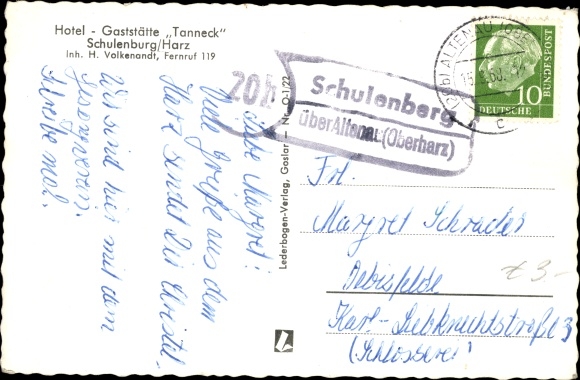 Hotel - Gaststätte „Tanneck"
Schulenburg/Harz
Inh. H. Volkenandt, Fernruf 119
20b
Schulenberg
über Altenau (Oberharz)
ALTENAU
c
DEUTSCHE BUNDESPOST
10
Lederbogen-Verlag, Goslar - Nr. O-1/22
Liebe Margret!
Viele Grüße aus dem
Harz sendet Dir Christel.
Wir sind hier mit dem
Schreibe mal.
Frl.
Margret Schrader
Oebisfelde
Karl-Liebknechtstraße 3
(Schlosserei)
€ 3-